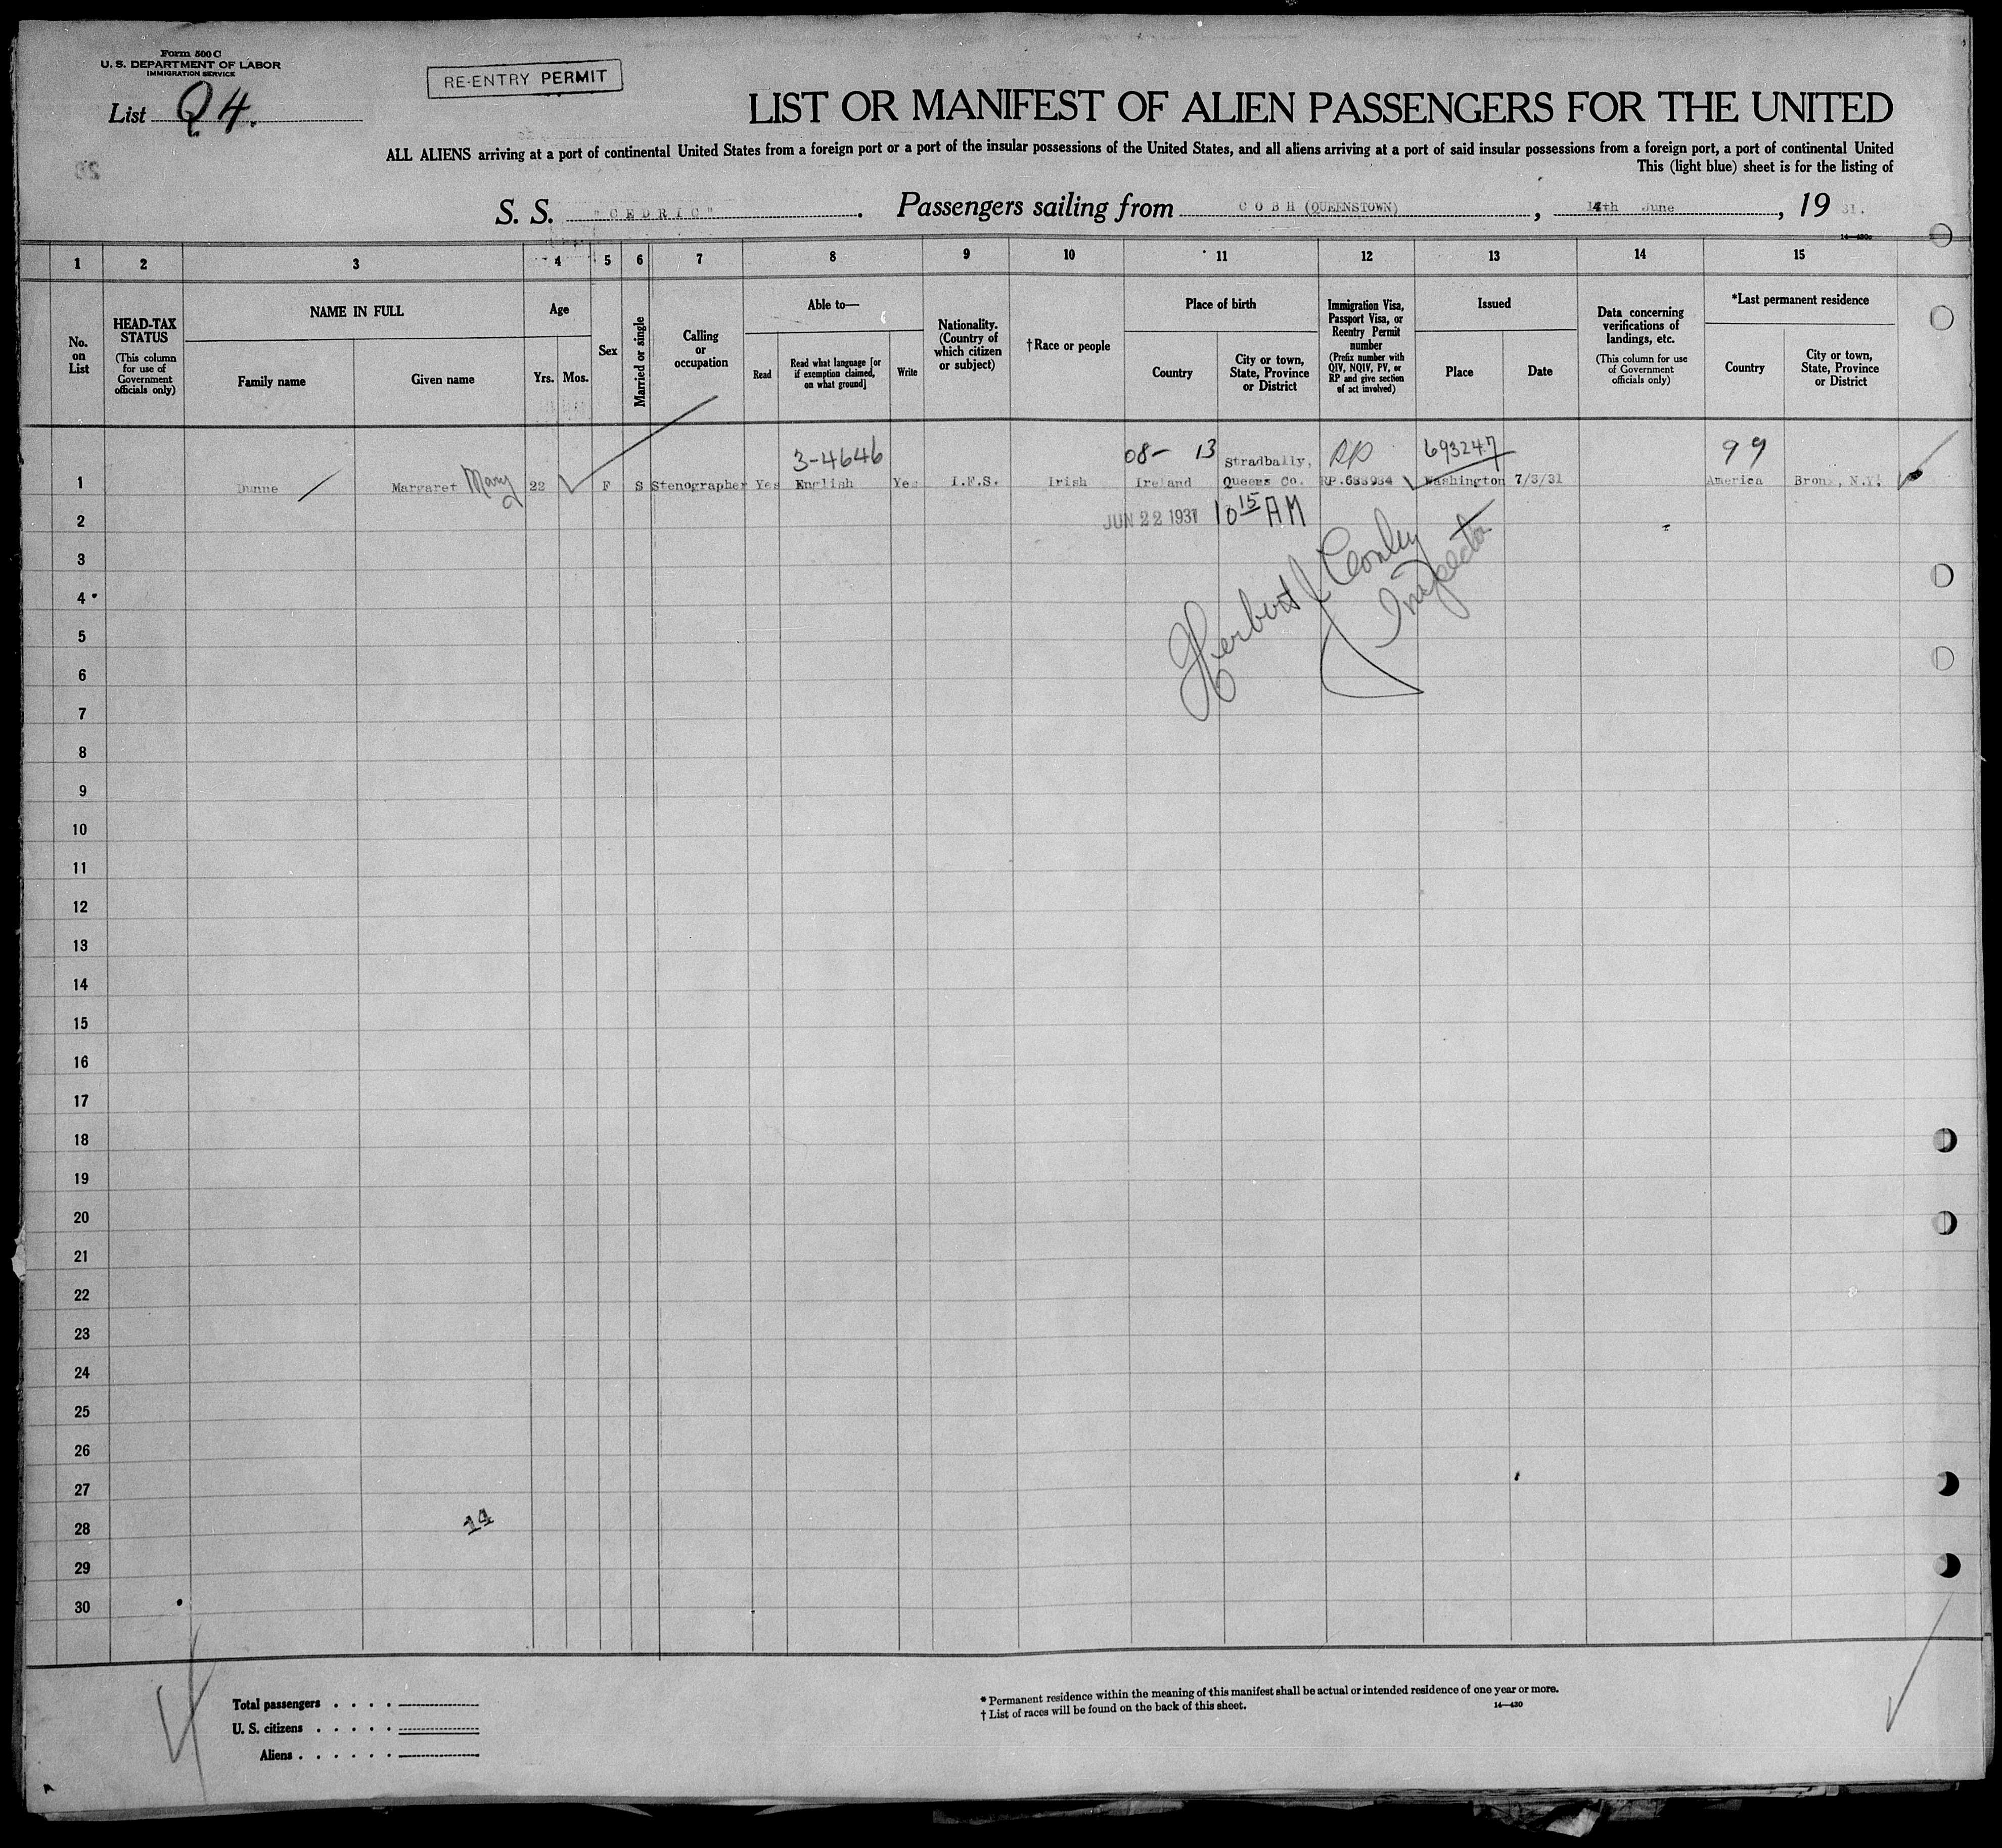 Form 500 C
U. S. DEPARTMENT OF LABOR
IMMIGRATION SERVICE
RE-ENTRY PERMIT
List Q4.
LIST OR MANIFEST OF ALIEN PASSENGERS FOR THE UNITED
ALL ALIENS arriving at a port of continental United States from a foreign port or a port of the insular possessions of the United States, and all aliens arriving at a port of said insular possessions from a foreign port, a port of continental United
This (light blue) sheet is for the listing of
S. S. "CEDRIC". Passengers sailing from COBH (QUEENSTOWN), 14th June, 1931.
14—430c
1 2 3 4 5 6 7 8 9 10 11 12 13 14 15
No. on List
HEAD-TAX STATUS
(This column for use of Government officials only)
NAME IN FULL
Family name
Given name
Age
Yrs. Mos.
Sex
Married or single
Calling or occupation
Able to—
Read
Read what language [or if exemption claimed, on what ground]
Write
Nationality. (Country of which citizen or subject)
†Race or people
Place of birth
Country
City or town, State, Province or District
Immigration Visa, Passport Visa, or Reentry Permit number
(Prefix number with QIV, NQIV, PV, or RP and give section of act involved)
Issued
Place
Date
Data concerning verifications of landings, etc.
(This column for use of Government officials only)
*Last permanent residence
Country
City or town, State, Province or District
3-4646 08- 13 Stradbally, RP 693247 99
1 Dunne Margaret Mary 22 F S Stenographer Yes English Yes I.F.S. Irish Ireland Queens Co. RP.688984 Washington 7/3/31 America Bronx, N.Y.
2 JUN 22 1931 10 15 AM
Herbert J Conley
Inspector
3
4
5
6
7
8
9
10
11
12
13
14
15
16
17
18
19
20
21
22
23
24
25
26
27
28
14
29
30
Total passengers . . . .
U. S. citizens . . . . .
Aliens . . . . . .
* Permanent residence within the meaning of this manifest shall be actual or intended residence of one year or more.
† List of races will be found on the back of this sheet.
14—430